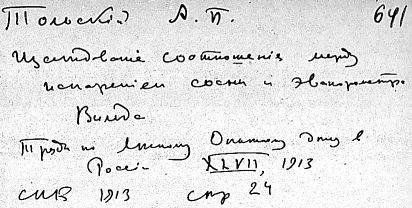 Тольский А. П. 641
Изследованіе соотношенія между
испареніем сосны и эвапорометра
Вильда
Труды по Лесному Опытному делу в
Россіи XLVII, 1913
СПБ 1913 стр 24